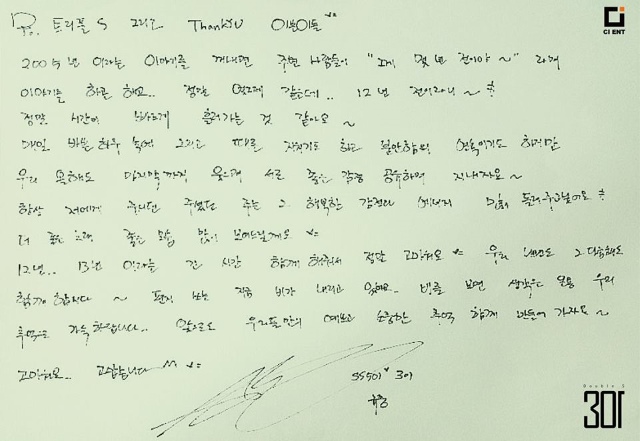 To. 트리플 S 그리고 ThankYU 이분이들 ^^
CI ENT
2005년 이라는 이야기를 꺼내면 주변 사람들이 "그게 몇 년 전이야~" 라며
이야기를 하곤 해요.. 정말 엊그제 같은데.. 12년 전이라니~?
정말 시간이 빠르게 흘러가는 것 같아요~
매일 바쁜 하루 속에 그리고 때론 지치기도 하고 불안함의 연속이기도 하지만
우리 올해도 마지막까지 웃으며 서로 좋은 감정 공유하며 지내자요~
항상 저에게 주는 그 행복한 감정과 에너지
더 좋은 노래 좋은 모습 많이 보여드릴게요 ^^
12년.. 13년 이라는 긴 시간 함께 해줘서 정말 고마워요 ^^ 우리
함께 합니다~ 편지 쓰는 지금 비가 내리고 있어요.. 비를 보면 생각은 온통 우리
추억으로 가득 하답니다.. 앞으로도 우리들만의 예쁘고 소중한 추억 함께 만들어 가자요~
고마워요.. 고맙습니다 ^^
SS501 301
Double S
301